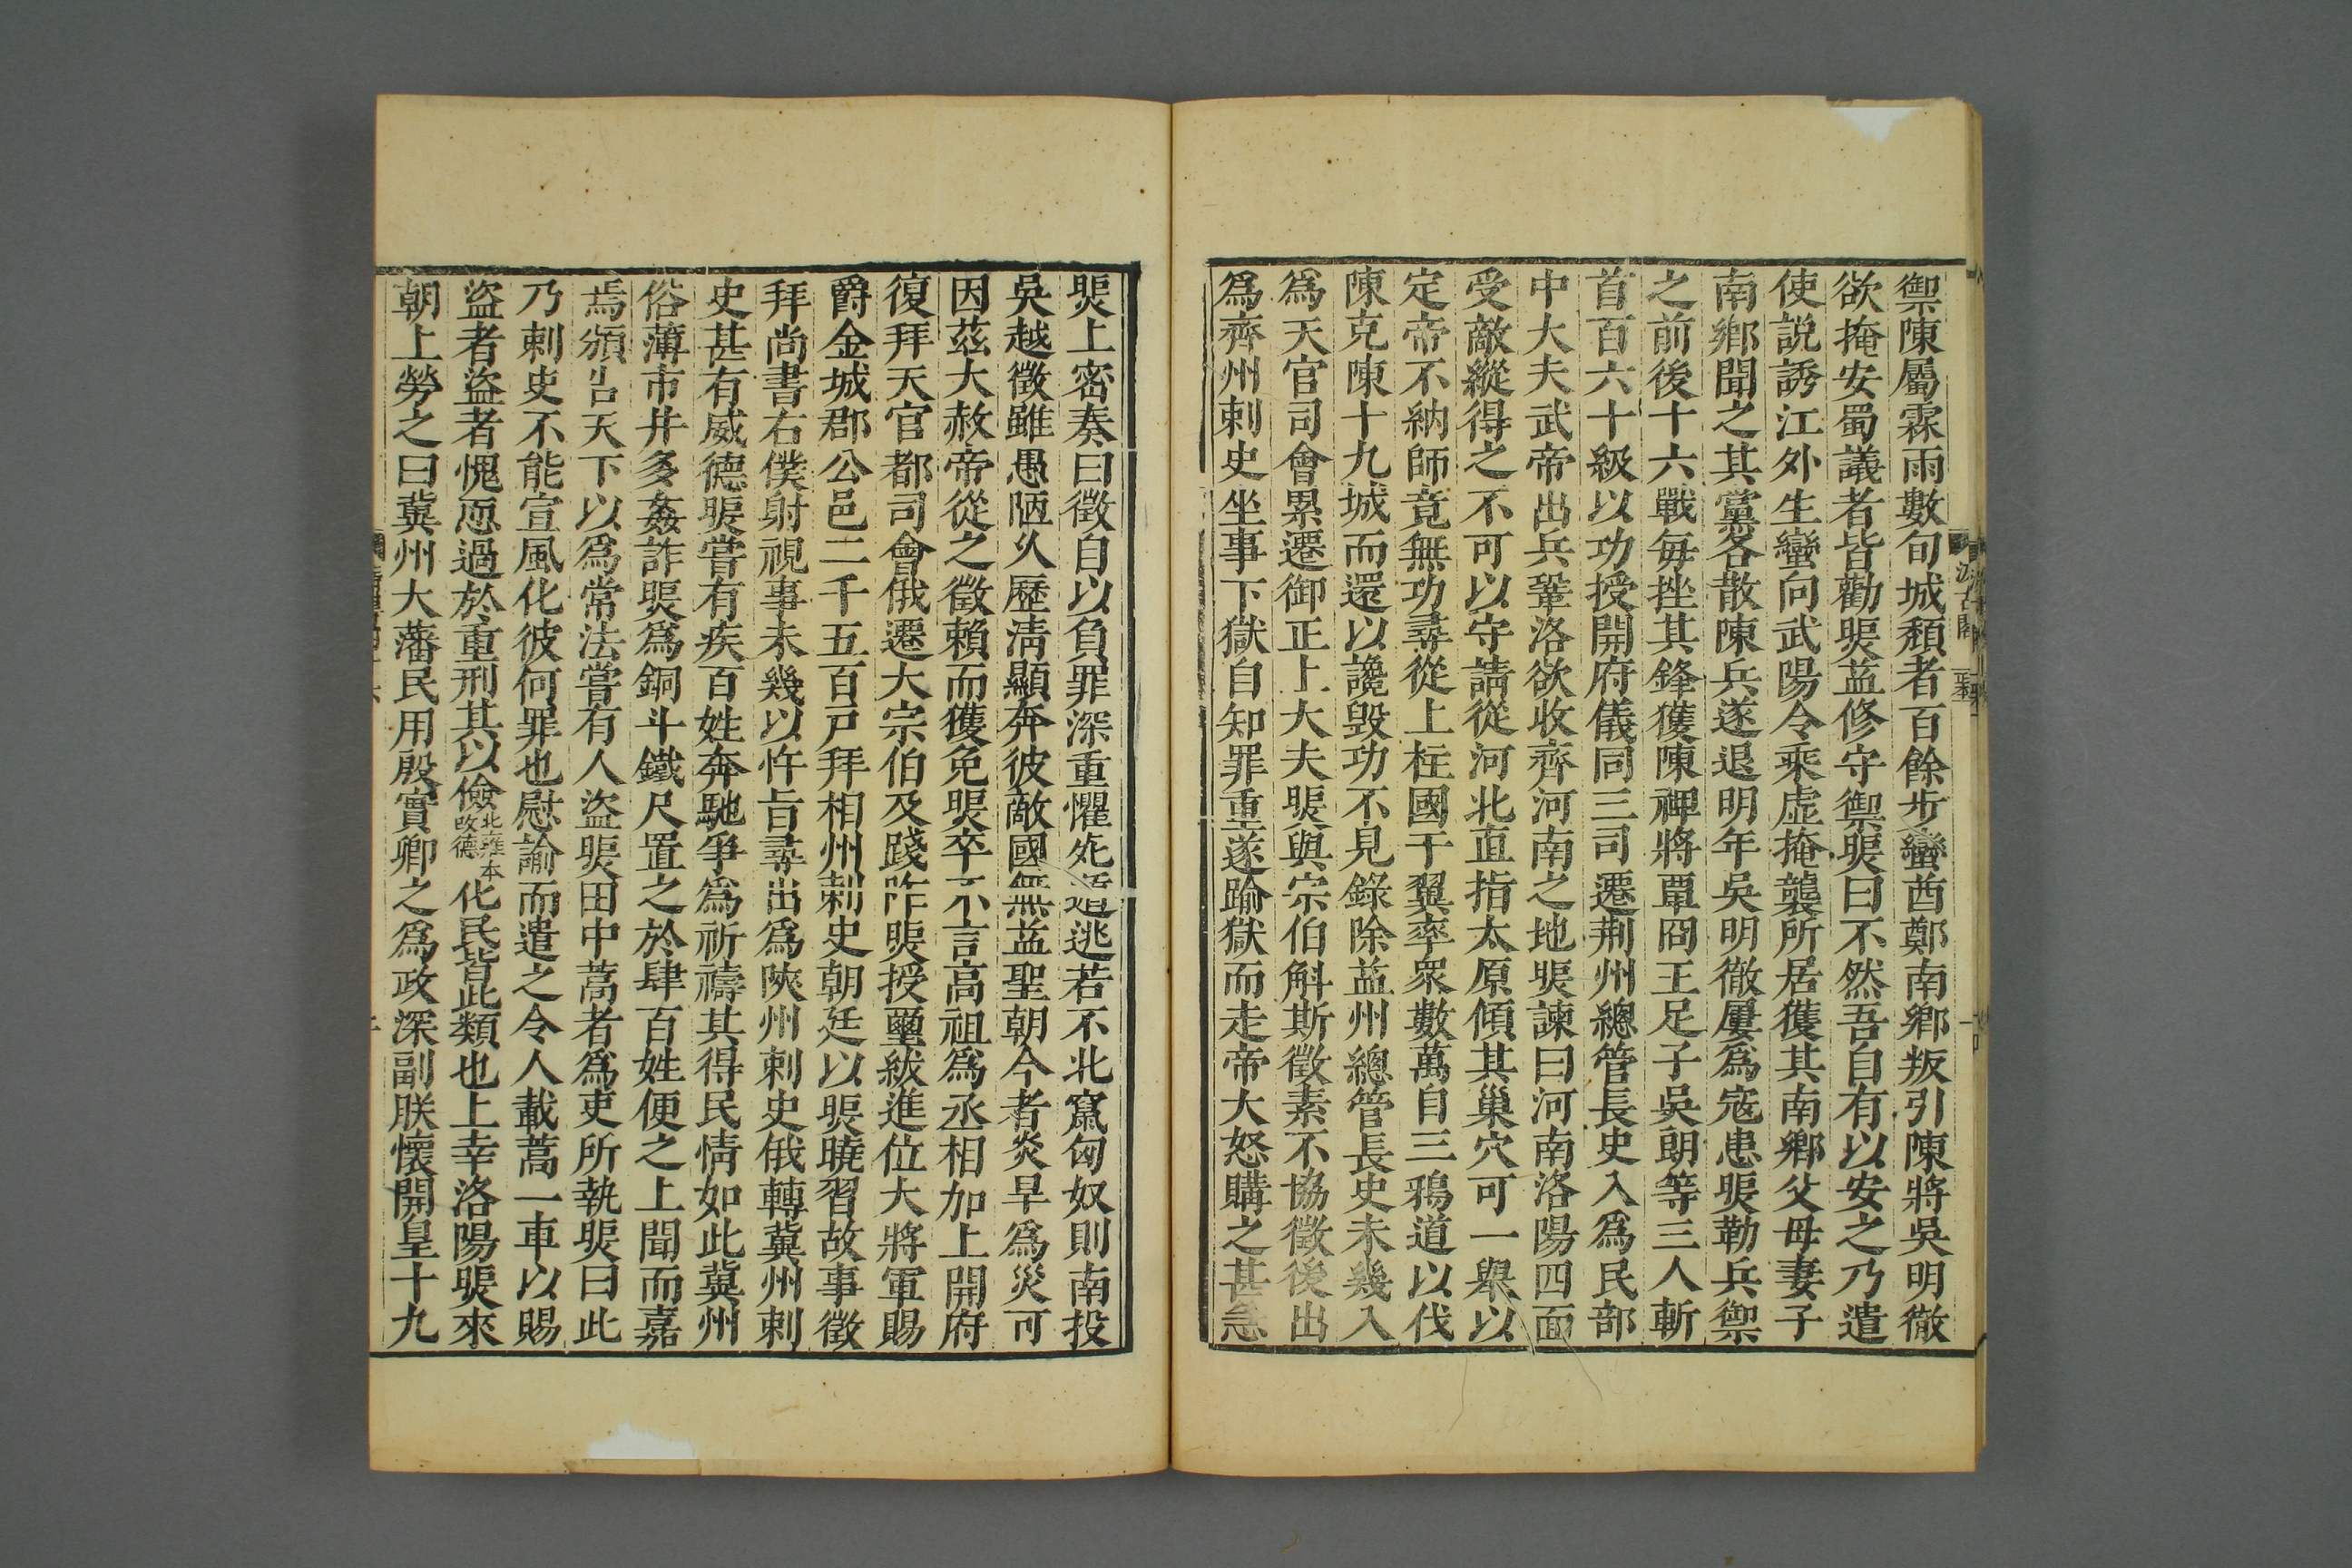 禦陳屬霖雨數旬城頹者百餘步蠻酋鄭南鄉叛引陳將吳明徹
欲掩安蜀議者皆勸煚益修守禦煚曰不然吾自有以安之乃遣
使說誘江外生蠻向武陽令乘虛掩襲所居獲其南鄉父母妻子
南鄉聞之其黨各散陳兵遂退明年吳明徹屢爲寇患煚勒兵禦
之前後十六戰每挫其鋒獲陳裨將覃冏王足子吳朗等三人斬
首百六十級以功授開府儀同三司遷荆州總管長史入爲民部
中大夫武帝出兵鞏洛欲收齊河南之地煚諫曰河南洛陽四面
受敵縱得之不可以守請從河北直指太原傾其巢穴可一舉以
定帝不納師竟無功尋從上柱國于翼率衆數萬自三鵶道以伐
陳克陳十九城而還以讒毀功不見錄除益州總管長史未幾入
爲天官司會累遷御正上大夫煚與宗伯斛斯徵素不協徵後出
爲齊州刺史坐事下獄自知罪重遂踰獄而走帝大怒購之甚急
煚上密奏曰徵自以負罪深重懼死遁逃若不北竄匈奴則南投
吳越徵雖愚陋久歷淸顯奔彼敵國無益聖朝今者炎旱爲災可
因茲大赦帝從之徵賴而獲免煚卒不言高祖爲丞相加上開府
復拜天官都司會俄遷大宗伯及踐阼煚授璽紱進位大將軍賜
爵金城郡公邑二千五百戸拜相州刺史朝廷以煚曉習故事徵
拜尚書右僕射視事未幾以忤旨尋出爲陝州刺史俄轉冀州刺
史甚有威德煚嘗有疾百姓奔馳爭爲祈禱其得民情如此冀州
俗薄市井多姦詐煚爲銅斗鐵尺置之於肆百姓便之上聞而嘉
焉頒吿天下以爲常法嘗有人盜煚田中蒿者爲吏所執煚曰此
乃刺史不能宣風化彼何罪也慰諭而遣之令人載蒿一車以賜
盜者盜者愧恧過於重刑其以儉北雍本改德化民皆此類也上幸洛陽煚來
朝上勞之曰冀州大藩民用殷實卿之爲政深副朕懷開皇十九